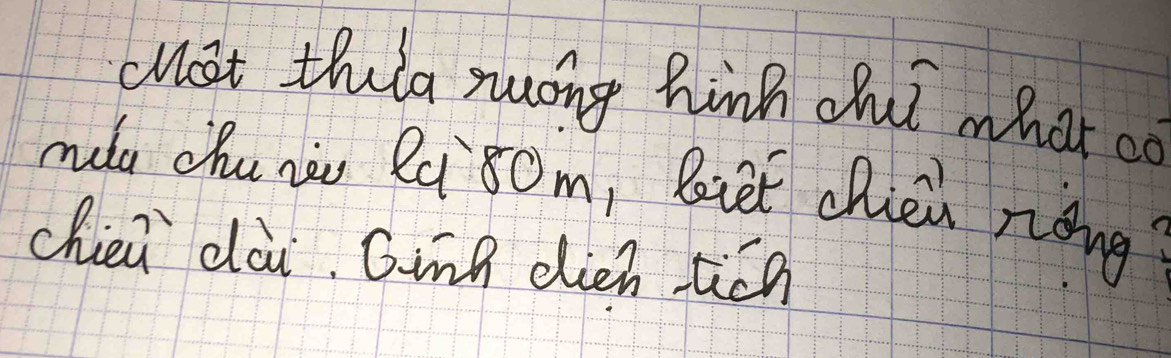 Một thửa ruộng hình chữ nhật có
nửa chu vi là 80m, biết chiều rộng
chiều dài. Tính diện tích